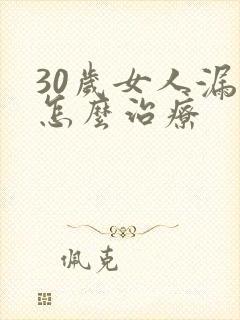 30歲女人漏
怎麼治療
佩克